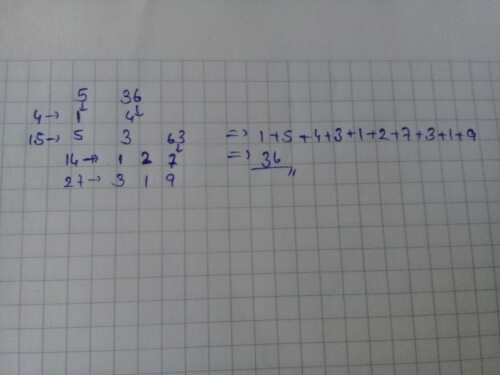 5 36
4→ 1 4
15→ 5 3 63 => 1+5+4+3+1+2+7+3+1+9
14→ 1 2 7 => 36
27→ 3 1 9